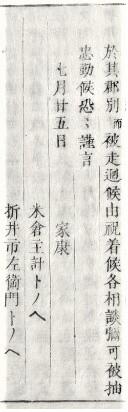 於其郡別而被走廻候由祝着候各相談彌可被抽
忠勤候恐々謹言
七月廿五日　家康
米倉主計トノヘ
折井市左衞門トノヘ